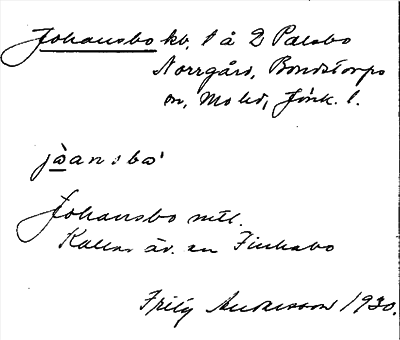 Johansbo kb, 1 å 2 Palsbo
Norrgård, Bondstorps
sn, Mo hd, Jönk. l.
jòansbω'
Johansbo mtl.
Kallas äv. en Finhabo
Fritz Andersson 1930.